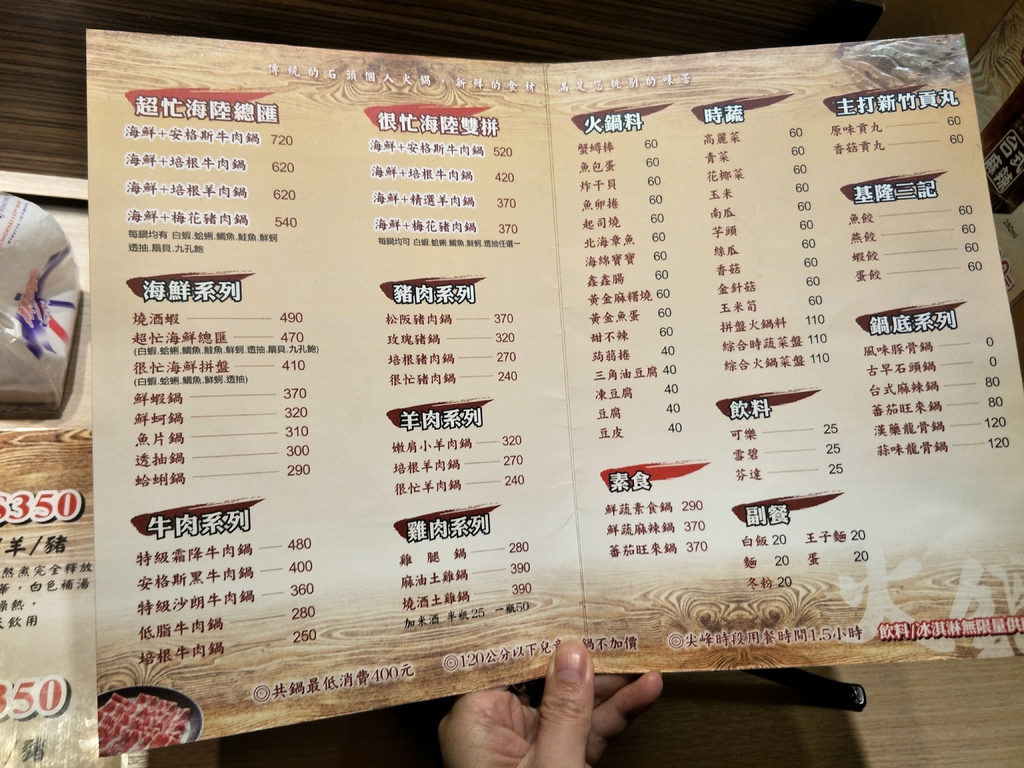 傳統的石頭個人火鍋，新鮮的食材 滿足您挑剔的味蕾
超忙海陸總匯
海鮮+安格斯牛肉鍋 720
海鮮+培根牛肉鍋 620
海鮮+培根羊肉鍋 620
海鮮+梅花豬肉鍋 540
每鍋均有 白蝦.蛤蜊.鯛魚.鮭魚.鮮蚵
透抽.扇貝.九孔鮑
海鮮系列
燒酒蝦 490
超忙海鮮總匯 470
(白蝦.蛤蜊.鯛魚.鮭魚.鮮蚵.透抽.扇貝.九孔鮑)
很忙海鮮拼盤 410
(白蝦.蛤蜊.鯛魚.鮮蚵.透抽)
鮮蝦鍋 370
鮮蚵鍋 320
魚片鍋 310
透抽鍋 300
蛤蜊鍋 290
牛肉系列
特級霜降牛肉鍋 480
安格斯黑牛肉鍋 400
特級沙朗牛肉鍋 360
低脂牛肉鍋 280
培根牛肉鍋 250
很忙海陸雙拼
海鮮+安格斯牛肉鍋 520
海鮮+培根牛肉鍋 420
海鮮+精選羊肉鍋 370
海鮮+梅花豬肉鍋 370
每鍋均可 白蝦.蛤蜊.鯛魚.鮮蚵.透抽任選一
豬肉系列
松阪豬肉鍋 370
玫瑰豬鍋 320
培根豬肉鍋 270
很忙豬肉鍋 240
羊肉系列
嫩肩小羊肉鍋 320
培根羊肉鍋 270
很忙羊肉鍋 240
雞肉系列
雞腿鍋 280
麻油土雞鍋 390
燒酒土雞鍋 390
加米酒 半瓶25 一瓶50
火鍋料
蟹蟳棒 60
魚包蛋 60
炸干貝 60
魚卵捲 60
起司燒 60
北海章魚 60
海綿寶寶 60
鑫鑫腸 60
黃金麻糬燒 60
黃金魚蛋 60
甜不辣 60
蒟蒻捲 40
三角油豆腐 40
凍豆腐 40
豆腐 40
豆皮 40
素食
鮮蔬素食鍋 290
鮮蔬麻辣鍋 370
蕃茄旺來鍋 370
時蔬
高麗菜 60
青菜 60
花椰菜 60
玉米 60
南瓜 60
芋頭 60
絲瓜 60
香菇 60
金針菇 60
玉米筍 60
拼盤火鍋料 110
綜合時蔬菜盤 110
綜合火鍋菜盤 110
飲料
可樂 25
雪碧 25
芬達 25
副餐
白飯 20 王子麵 20
麵 20 蛋 20
冬粉 20
主打新竹貢丸
原味貢丸 60
香菇貢丸 60
基隆三記
魚餃 60
燕餃 60
蝦餃 60
蛋餃 60
鍋底系列
風味豚骨鍋 0
古早石頭鍋 0
台式麻辣鍋 80
蕃茄旺來鍋 80
漢藥龍骨鍋 120
蒜味龍骨鍋 120
◎共鍋最低消費400元
◎120公分以下兒 鍋不加價
◎尖峰時段用餐時間1.5小時
火鍋
飲料/冰淇淋無限量供
$350
/羊/豬
熬煮完全釋放
，白色補湯
燥熱，
飲用
350
豬